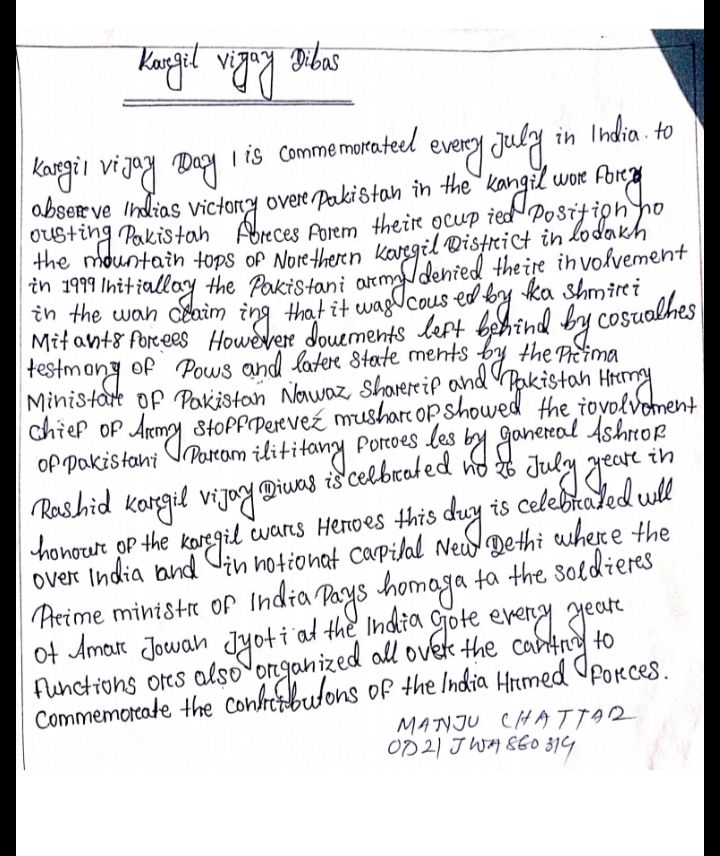 Kargil vigay Dibas
Karegil vijay Day 1 is commemorateel every July in India. to
observe Indias victorcy overe Pakistan in the kangil wore Forcy
ousting Pakistan Forces Forem theire ocup ied Position no
the mountain tops of Northercn Karegil District in lodakh
in 1999 Initiallay the Pakistani army denied theire involvement
in the wan claim ing that it was cous ed by ka shmirci
Mitants forcees Howevere douements left behind by cosualhes
testmony of Pows and latere state ments by the Preima
Ministare of Pakistan Nawaz Sharercif and Pakistan Hrmy
chief of Army Stoff Pervez musharcof showed the iovolvoment
of Pakistani Param ilititany forcoes les by ganercal Ashrof
Rashid kargil vijay Diwas is celbrcated no 26 July yearc in
honoure of the karegil warcs Heroes this duy is celebrcated ull
overc India and in notionat capilal New Dethi where the
Preime ministre of India Pays homaga ta the soldieres
ot Amarc Jowan Jyoti at the India Gote every yearc
functions orcs also organized all over the cantry to
Commemorcate the contrcibutons of the India Hrmed forces.
MANJU CHATTAR
OD21JWA860314